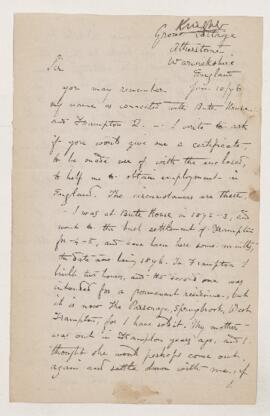 Grove Cottage
Atherstone
Warwickshire
England
Jan 10/96
Sir
you may remember
my name as connected with Bute House
and Frampton R. - I write to ask
if you would give me a certificate,
to be made use of with the enclosed,
to help me to obtain employment in
England. The circumstances are these.
- I was at Bute House in 1892-3, and
went to the bush settlement of Frampton
for -4-5, and have been here some months,
the date now being 1896. In Frampton I
built two houses, and the second one was
intended for a permanent residence, but
it is now the Parsonage, Springbrook, Post
Frampton, for I have sold it. My mother
was out in Frampton years ago, and I
thought she would perhaps come out
again and settle down with me, if